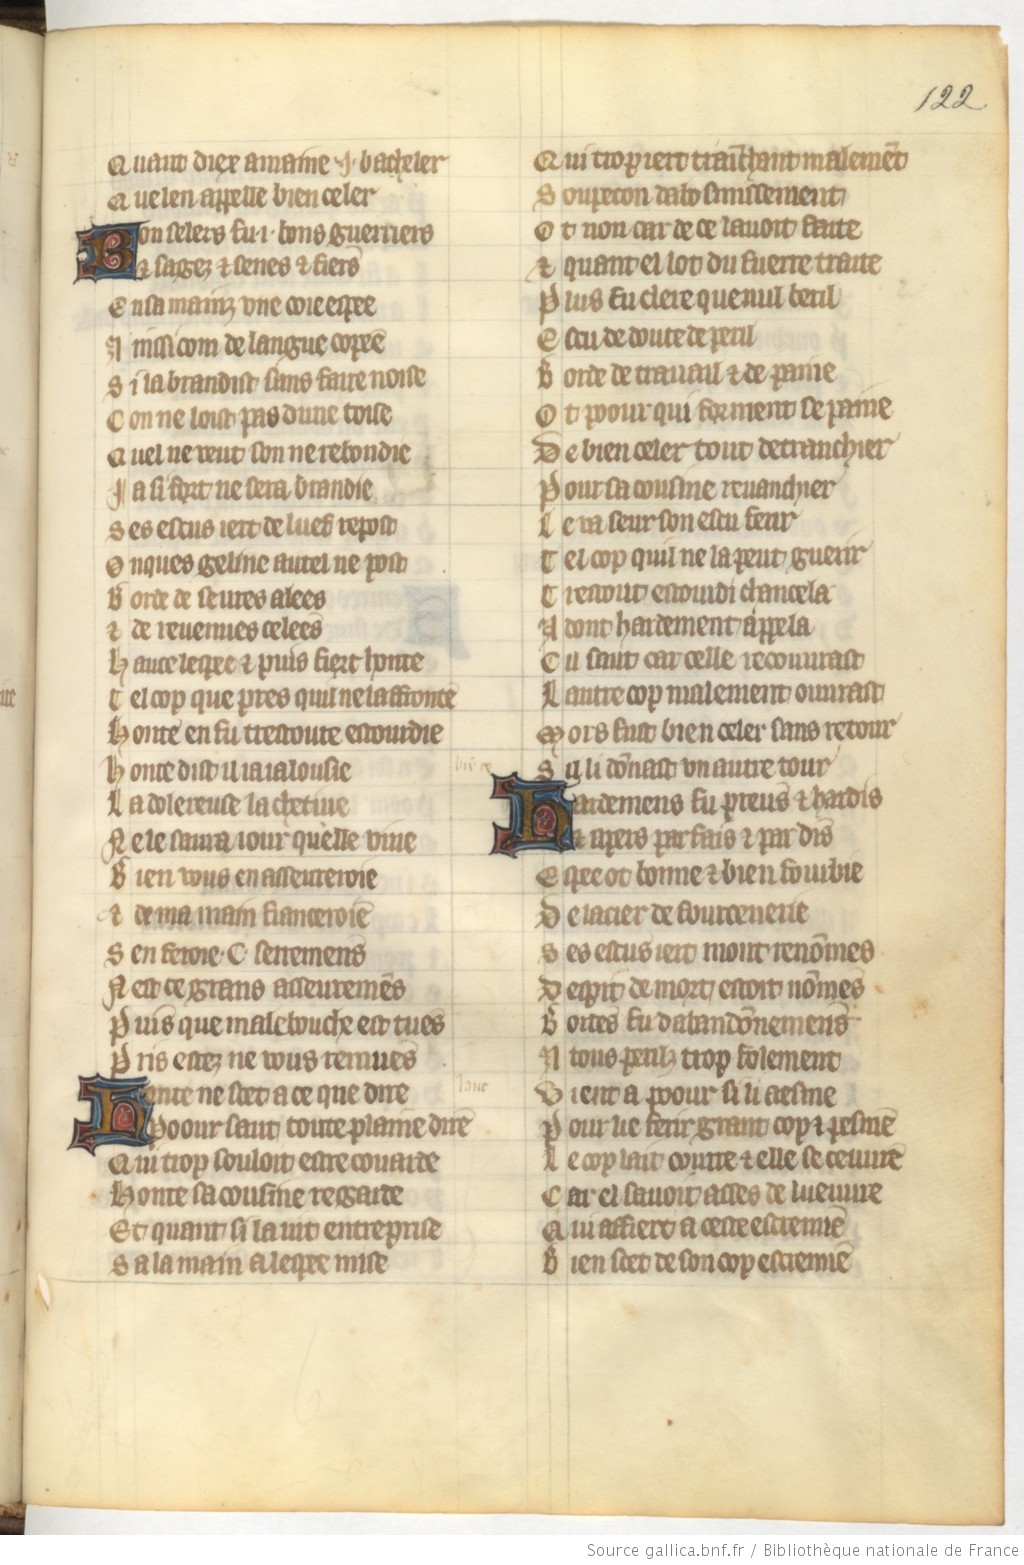 122
Quant diex amaine .i. bacheler
Que len appelle bien celer
Bon celers fu .i. bons guerriers
& sagez & senes & fiers
En sa mainz vne coie espee
Ainssi com de langue copee
Si la brandist sans faire noise
Con ne loist pas dune toise
Quel ne rent son ne rebondie
Ja si fort ne sera brandie
Ses escus iert de lués repost
Onques geline en tel ne post
Borde de seures alees
& de reuenues celees
Hauce lespee & puis fiert honte
Tel cop que pres quil ne laffronte
Honte en fu trestoute estourdie
Honte dist il ia ialousie
La dolereuse la chetiue
Ne le saura iour quelle viue
Bien vous en asseureroie
& de ma main fianceroie
Sen feroie .C. serremens
Nest ce grans asseuremēs
Puis que malebouche est tues
Pris estez ne vous remues
Honte ne scet a ce que dire
Poour saut toute plaine dire
Qui trop souloit estre couarde
Honte sa cousine regarde
Et quant si la vit entreprise
Sa la main a lespee mise
Qui trop iert trainchant malemēt
Soupecon dabofinissement
Ot non car de ce lauoit faite
& quant el lot du fuerre traite
Plus fu clere que nul beril
Escu de doute de peril
Borde de trauail & de paine
Ot poour qui forment se paine
De bien celer tout detranchier
Pour sa cousine reuanchier
Le va seur son escu ferir
Tel cop quil ne la peut guerir
Trestout estourdi chancela
Adont hardement appela
Cil saut car celle recouurast
Lautre cop malement ouurast
Mors fust bien celer sans retour
Sil li dōnast vn autre tour
Hardemens fu preus & hardis
& apers par fais & par dis
Espee ot bonne & bien fourbie
De lacier de fourcenerie
Ses escus iert mont renōmes
Despit de mort estoit nōmes
Bordes fu dabandōnemens
A tous perilz trop folement
Vient a poour si li aesme
Pour lie ferir grant cop & pesme
Le cop lait courre & elle se cueuure
Car el sauoit asses de lueuure
Qui affiert a ceste escremie
Bien scet de son cop escremie
Source gallica.bnf.fr / Bibliothèque nationale de France